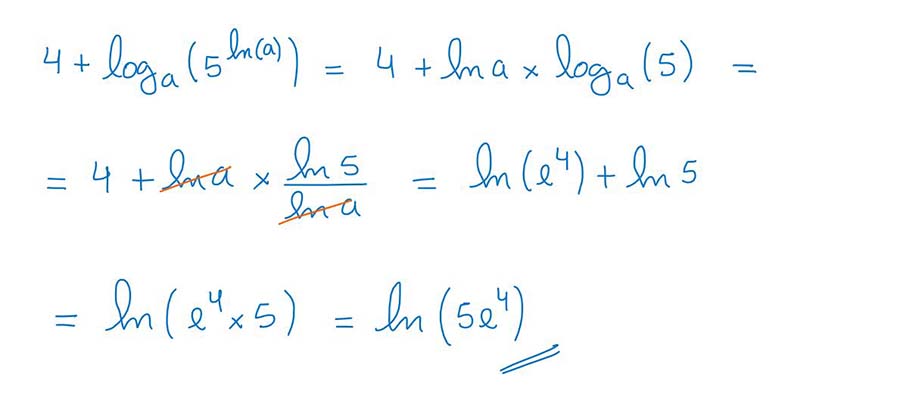 4 + logₐ(5^ln(a)) = 4 + ln a × logₐ(5) =
= 4 + ln a × ln 5 / ln a = ln(e⁴) + ln 5
= ln(e⁴ × 5) = ln(5e⁴)